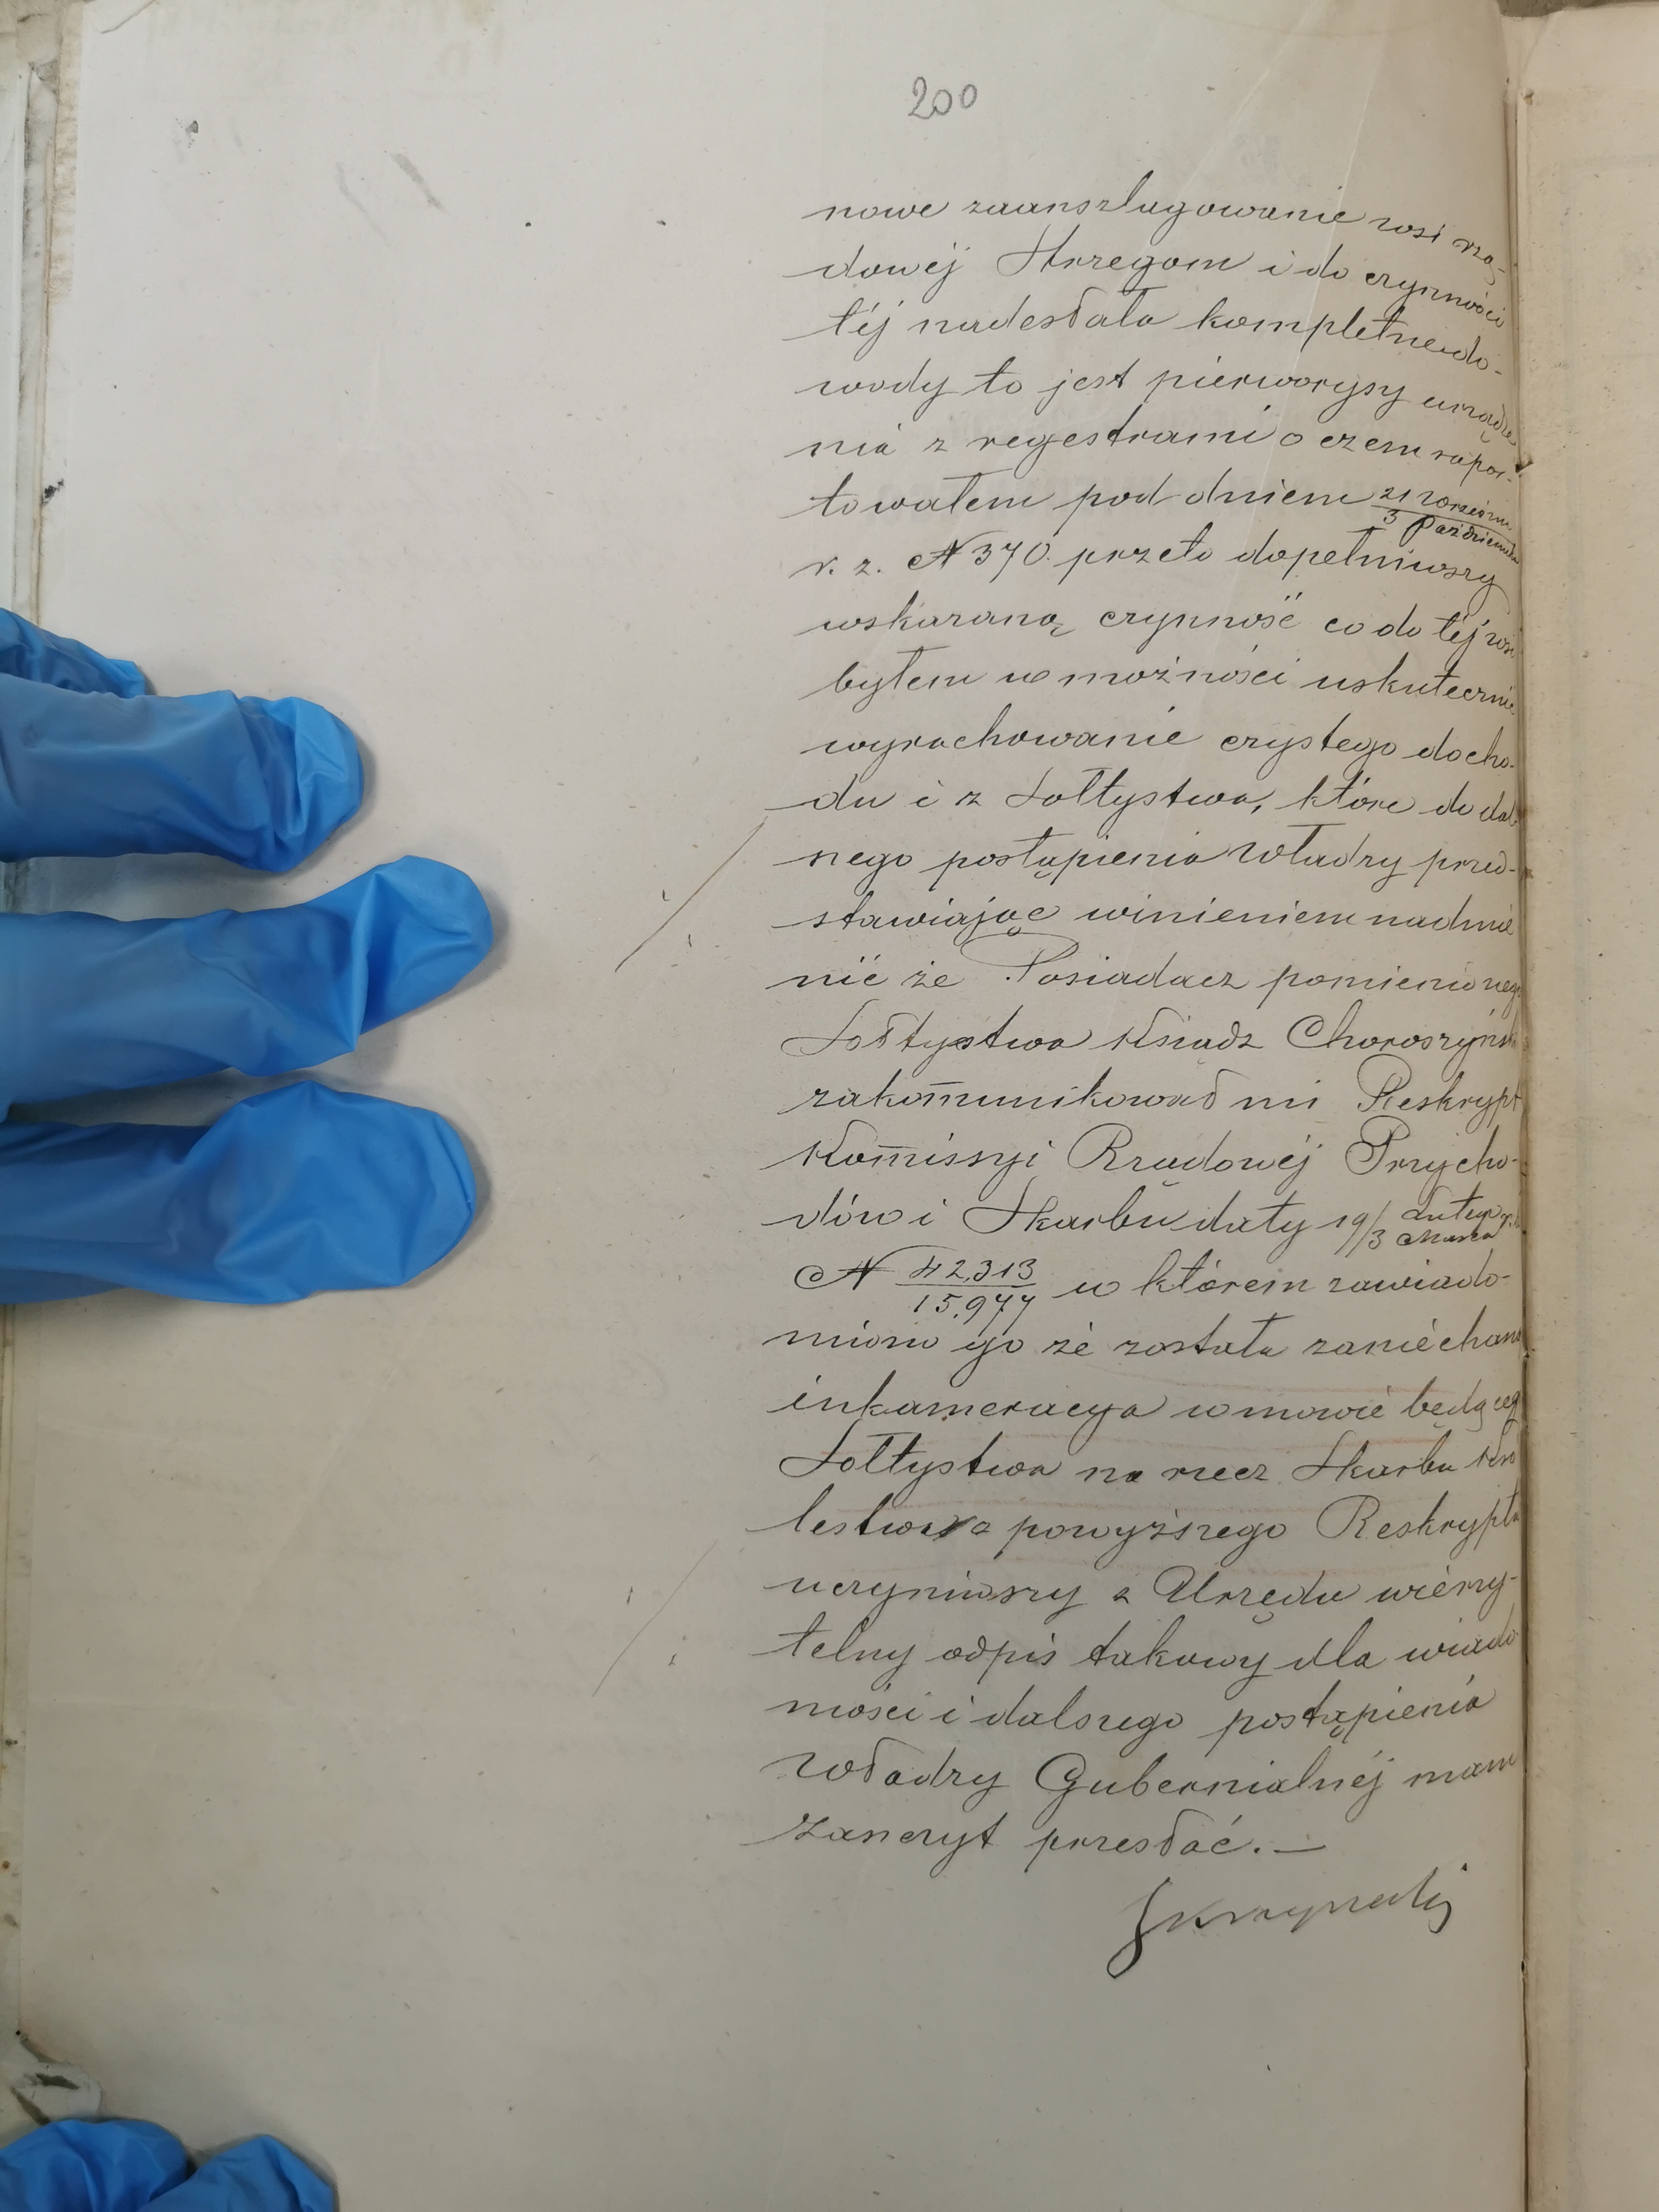 200
nowe zaanszlagowanie wsi rzą-
dowéj Strzegom i do czynności
téj nadesłała kompletne do-
wody to jest pierworysy urządze
nia z regestrami o czem rapor-
towałem pod dniem 21 Września / 3 Październik
r. z. N 370. przeto dopełniwszy
wskazaną czynność co do téj wsi
byłem w możności uskutecznić
wyrachowanie czystego docho-
du i z Sołtystwa, które do dal-
szego postąpienia Władzy przed-
stawiając winienem nadmie
nić że Posiadacz pomienioneg
Sołtystwa Ksiądz Choroszyńsk
zakom̄unikował mi Reskrypt
Kom̄issyi Rządowéj Przycho-
dów i Skarbu daty 19/3 Lutego / Marca
N 42,313/15,977 w którem zawiado-
miono go że została zaniechan
inkameracya w mowie będąceg
Sołtystwa na rzecz Skarbu Kró
lestwa z powyższego Reskryptu
uczyniwszy z Urzędu wierzy-
telny odpis takowy dla wiado
mości i dalszego postąpienia
Władzy Gubernialnéj mam
zaszczyt przesłać.—